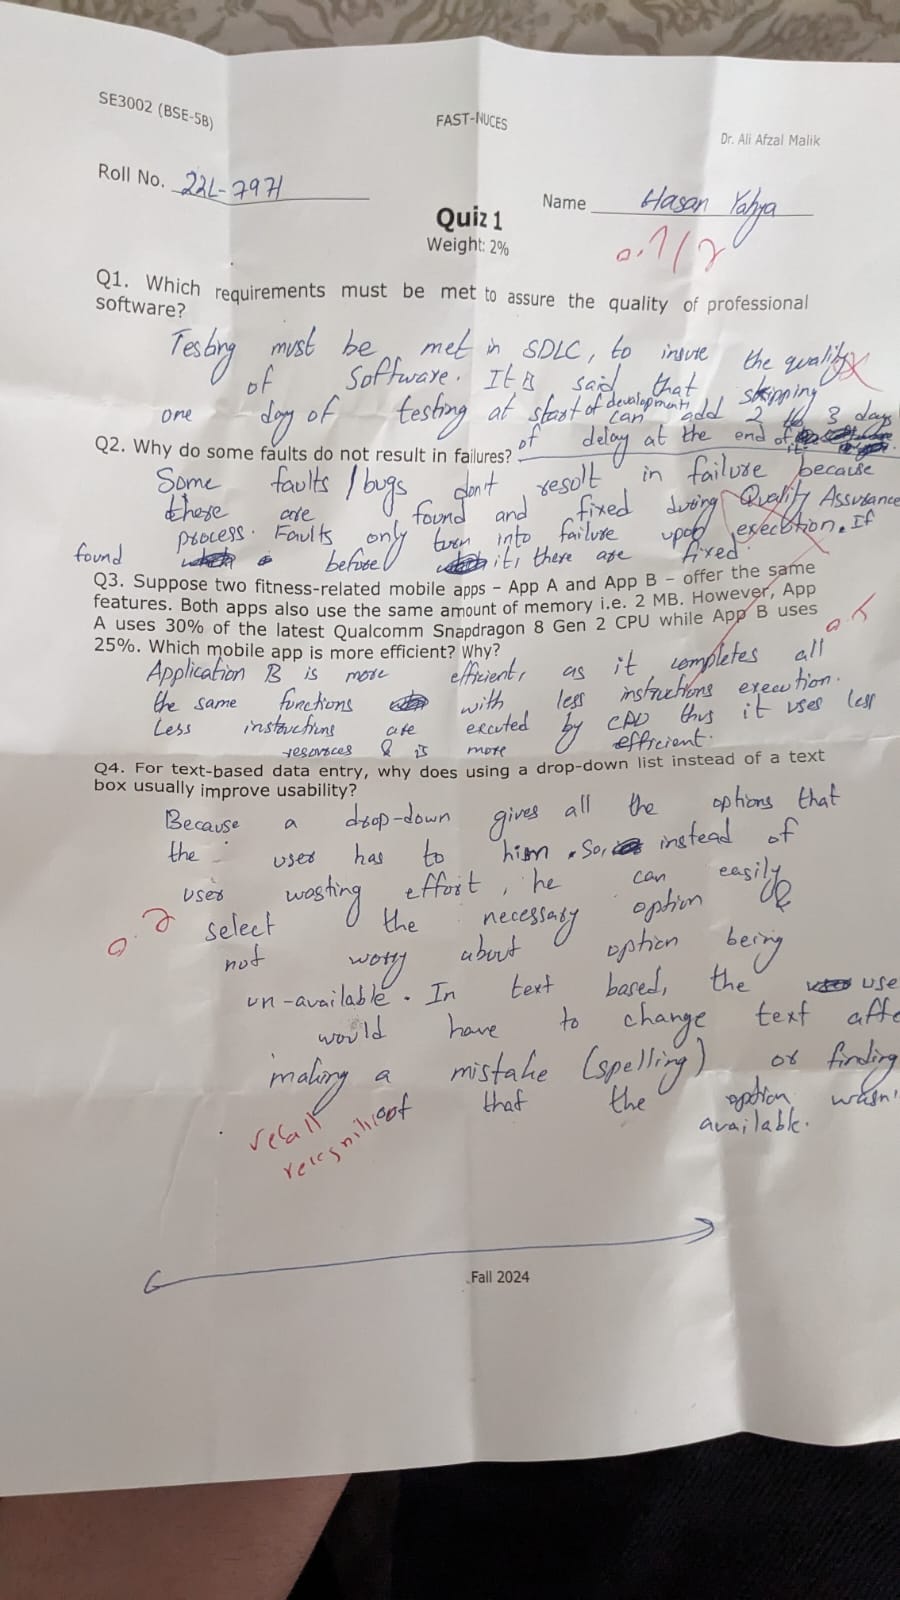 SE3002 (BSE-5B)
FAST-NUCES
Dr. Ali Afzal Malik
Roll No. 22L-7971
Name Hasan Yahya
Quiz 1
Weight: 2%
0.7/2
Q1. Which requirements must be met to assure the quality of professional
software?
Testing must be met in SDLC, to insure the quality
of Software. It is said that skipping
one day of testing at start of development, can add 2 to 3 days
of delay at the end of it.
Q2. Why do some faults do not result in failures?
Some faults / bugs don't result in failure because
these are found and fixed during Quality Assurance
process. Faults only turn into failure upon execution. If
found before it, there are fixed.
Q3. Suppose two fitness-related mobile apps – App A and App B – offer the same
features. Both apps also use the same amount of memory i.e. 2 MB. However, App
A uses 30% of the latest Qualcomm Snapdragon 8 Gen 2 CPU while App B uses
25%. Which mobile app is more efficient? Why?
0.5
Application B is more efficient, as it completes all
the same functions with less instructions execution.
Less instructions are excuted by CPU thus it uses less
resources & is more efficient.
Q4. For text-based data entry, why does using a drop-down list instead of a text
box usually improve usability?
Because a drop-down gives all the options that
the user has to him. So, instead of
user wasting effort, he can easily
0.2
select the necessary option &
not worry about option being
un-available. In text based, the use
would have to change text afte
making a mistake (spelling) or finding
out that the option wasn'
available.
recall
recognition
Fall 2024